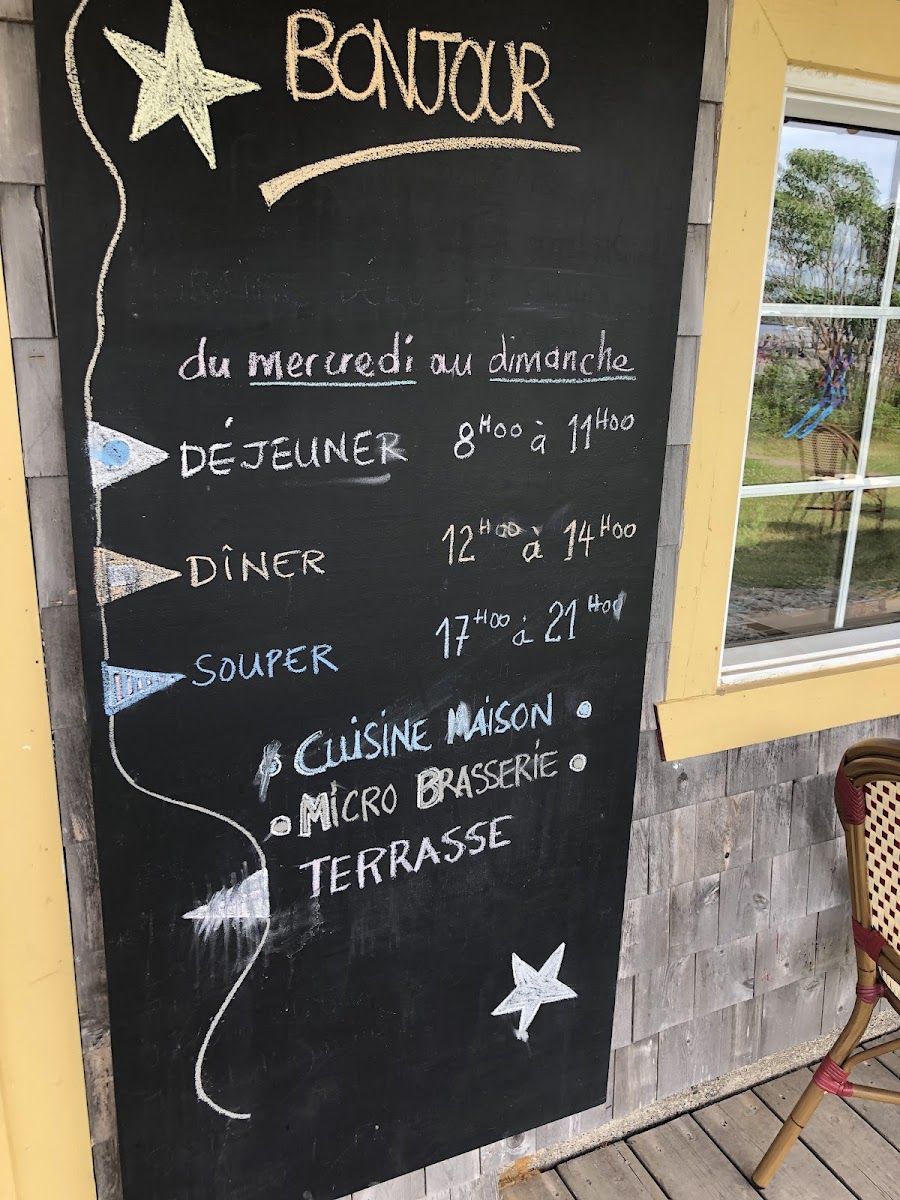 BONJOUR
du mercredi au dimanche
DÉJEUNER 8H00 à 11H00
DÎNER 12H00 à 14H00
SOUPER 17H00 à 21H00
• CUISINE MAISON •
• MICRO BRASSERIE •
TERRASSE